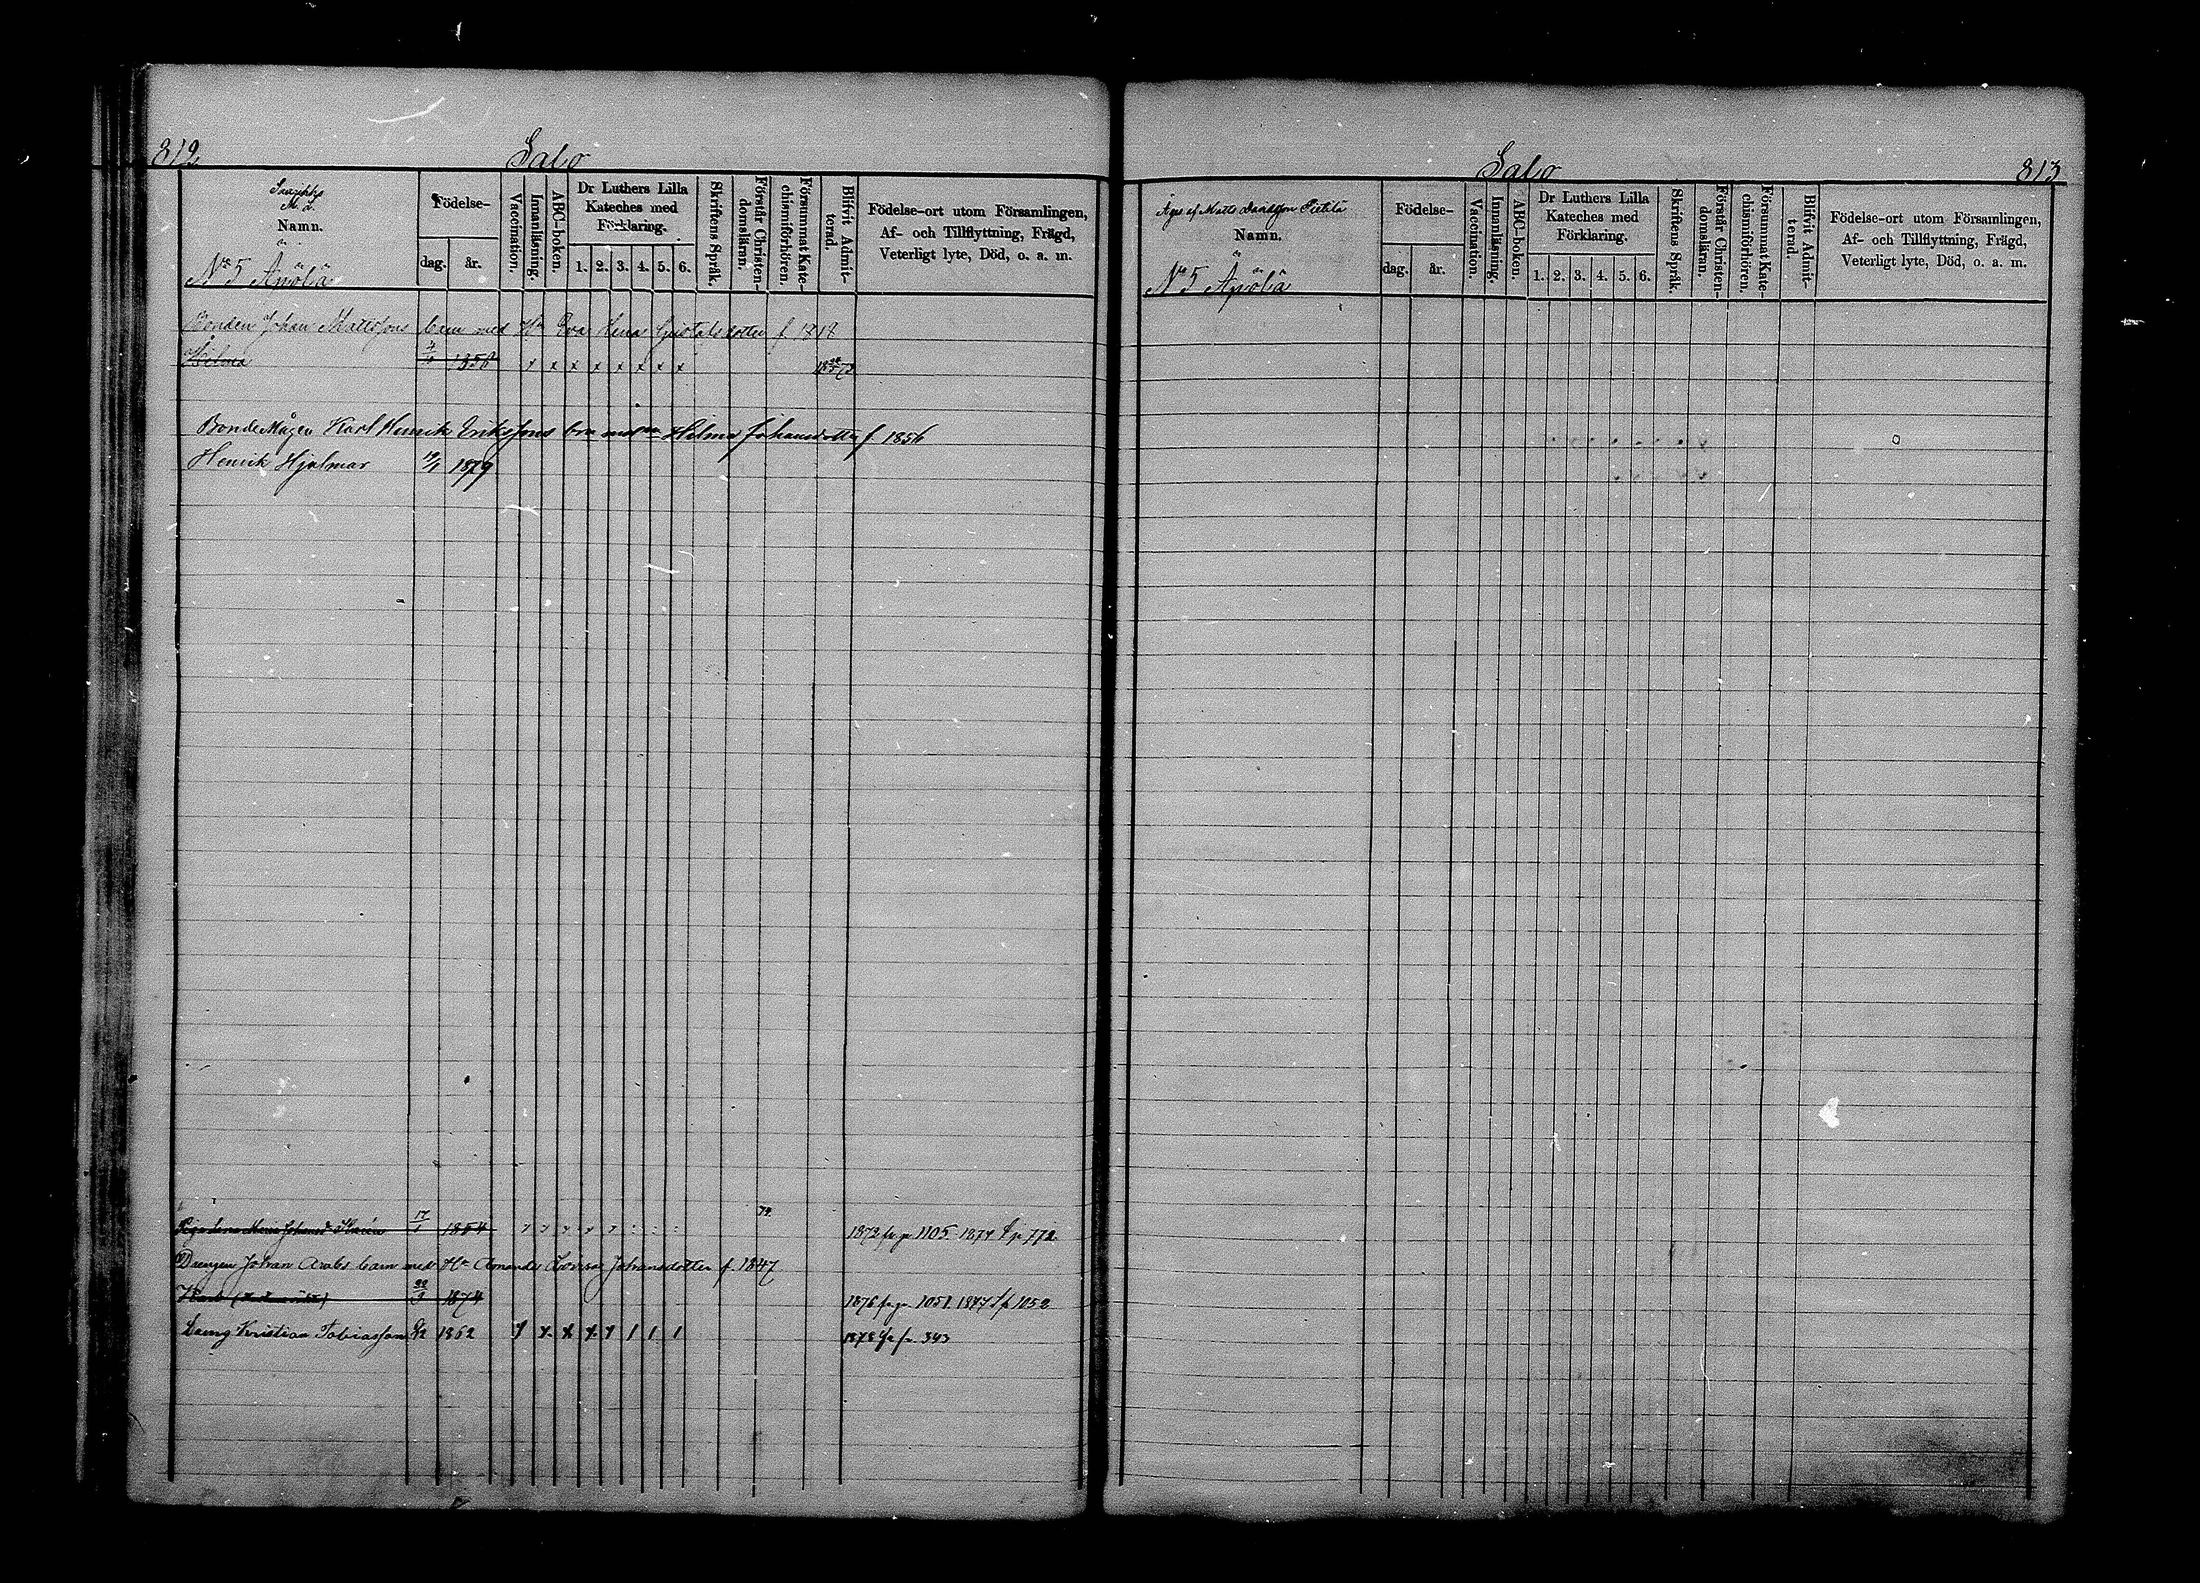 812
Salo
M. L.
Namn.
Födelse-
dag. år.
Vaccination.
Innanläsning.
ABC-boken.
Dr Luthers Lilla
Kateches med
Förklaring.
1. 2. 3. 4. 5. 6.
Skriftens Språk.
Förstår Christen-
domsläran.
Försummat Kate-
chismiförhören.
Blifvit Admit-
terad.
Födelse-ort utom Församlingen,
Af- och Tillflyttning, Frägd,
Veterligt lyte, Död, o. a. m.
No 5 Äijölä
Bonden Johan Mattssons barn med Hu Eva Lena Gustafsdotter f. 1818
Helma 1856 x x x x x x x x
Bonde Mågen Karl Henrik Erikssons barn med Helma Johansdotter f 1856
Henrik Hjalmar 1879
74
Maria Johansd 17/1 1854 1872 fr p 1105 1874 t p 772
Drengen Johan Arabs barn med Hu Amanda Lovisa Johansdotter f. 1847
1874 1876 fr p 1051 1877 t p 1052
Kristian Tobiasson 1862 1878 fr p 343
813
Salo
Äges af Matts Davidsson Pietilä
Namn.
Födelse-
dag. år.
Vaccination.
Innanläsning.
ABC-boken.
Dr Luthers Lilla
Kateches med
Förklaring.
1. 2. 3. 4. 5. 6.
Skriftens Språk.
Förstår Christen-
domsläran.
Försummat Kate-
chismiförhören.
Blifvit Admit-
terad.
Födelse-ort utom Församlingen,
Af- och Tillflyttning, Frägd,
Veterligt lyte, Död, o. a. m.
No 5 Äijölä